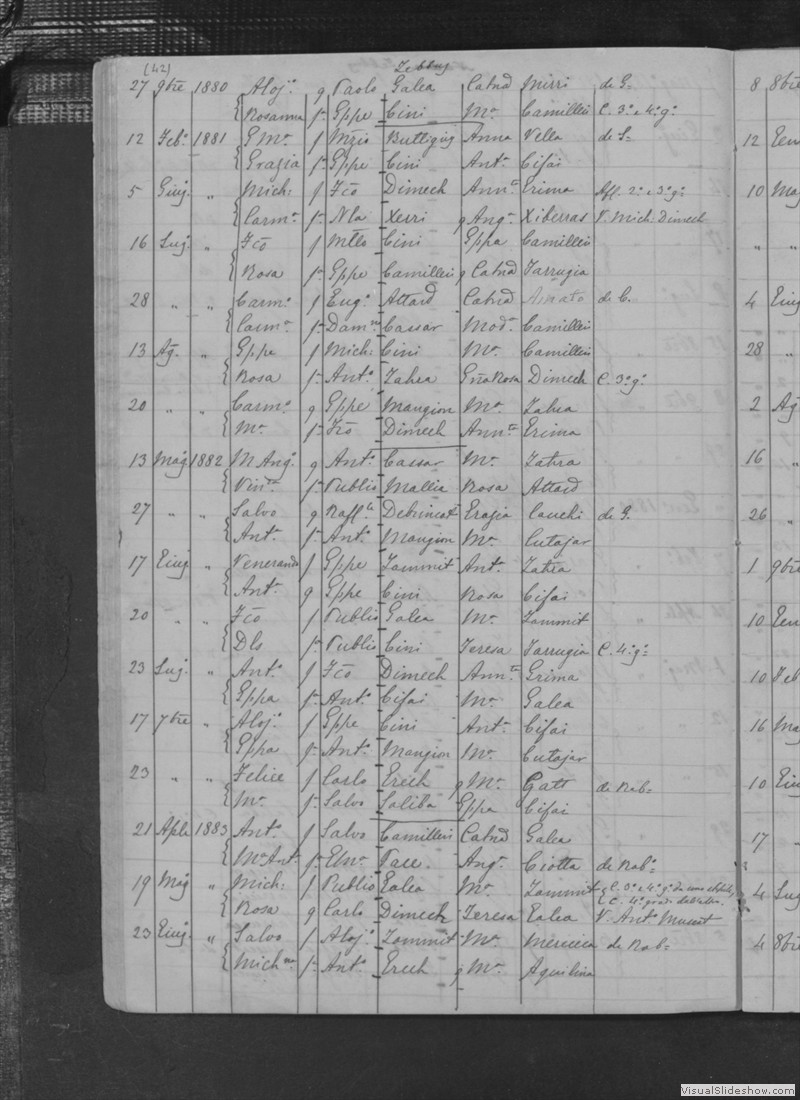 (42)
Zebbug
27 9bre 1880 Aloj.o q Paolo Galea Catnd Mirri de G=
Rosanna f= Gppe Cini Ma Camilleri C. 3o e 4o go
12 Febo 1881 G Ma f Mzio Buttigieg Anna Vella de S=
Grazia f= Gppe Cini Anta Cifai
5 Giug. " Mich: f Fco Dimech Anntta Grima Aff. 2o e 3o go
Carma f= Nla Xerri q Anga Xiberras V. Mich. Dimech
16 Lug. " Fco f Mtto Cini Gppa Camilleri
Rosa f= Gppe Camilleri q Catnd Farrugia
28 " " Carmo f Eugo Attard Catnd Amato de C.
Carma f= Damno Cassar Moda Camilleri
13 Ag. " Gppe f Mich: Cini Ma Camilleri
Rosa f= Anto Zahra Gña Rosa Dimech C. 3o go
20 " " Carmo q Gppe Mangion Ma Zahra
Ma f= Fco Dimech Anntta Grima
13 Mag 1882 M Ango q Anto Cassar Ma Zahra
Vinza f= Publio Mallia Rosa Attard
27 " " Salvo q Raffle Debrincat Grazia Cauchi de G.
Anta f= Anto Mangion Ma Cutajar
17 Giug " Venerando f Gppe Zammit Anta Zahra
Anta q Gppe Cini Rosa Cifai
20 " " Fco f Publio Galea Ma Zammit
Dls f= Publio Cini Teresa Farrugia C. 4o go=
23 Lug. " Anto f Fco Dimech Anntta Grima
Gppa f= Anto Cifai Ma Galea
17 7bre " Aloj.o f Gppe Cini Anta Cifai
Gppa f= Anto Mangion Ma Cutajar
23 " " Felice f Carlo Grech q Ma Gatt de Rab=
Ma f= Salvo Saliba Gppa Cifai
21 Aple 1883 Anto f Salvo Camilleri Catnd Galea
Ma Anta f= Elmo Pace Anga Ciotta de Rabo
19 Mag " Mich: f Publio Galea Ma Zammit C. 3o e 4o go da uno
C. 4o
Rosa q Carlo Dimech Teresa Galea V. Anto
23 Giug. " Salvo f Aloj.o Zammit Ma Mercieca de Rab=
Michna f= Anto Grech q Ma Aquilina
8 8bre
12 Gen
10 Mag
" "
4 Giug
28 "
2 Ag
16 "
26 "
1 9bre
10 Gen
10 Feb
16 Ma
10 Giug
17 "
4 Lug
4 8bre
VisualSlideshow.com